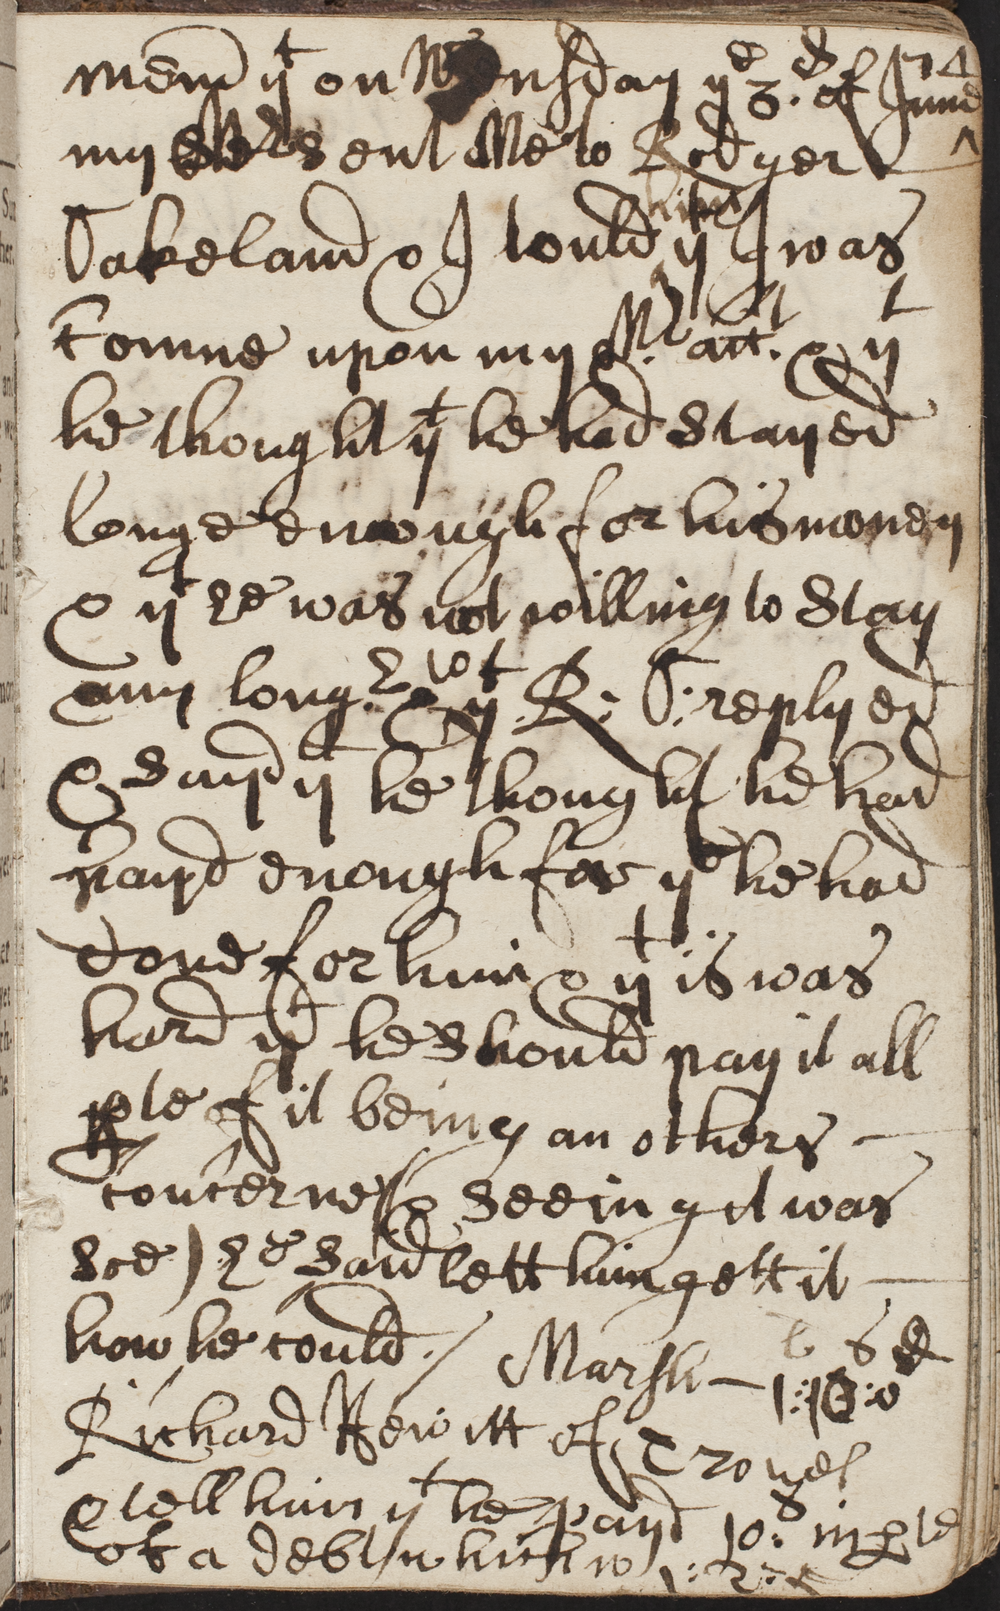 Mend yt on Wensday ye 3.d of June 74
my Mr sent Me to Rodger
Sakeland & I tould him yt I was
Comne upon my Mr. acct. & yt
he thought yt he had stayed
longe enough for his money
& yt he was not willing to stay
any longr. & yt R: S: replyed
& sayd yt he thought he had
payd enough for yt he had
done for him & yt is was
hard yt he should pay it all
pte of it being an others
concerne (& seeing it was
soe) he said lett him gett it
how he could. / Marsh — l s d
1:10:0
Richard Hewitt of
& tell him yt he payd 10s in pte
of a debt which w 1: 2: